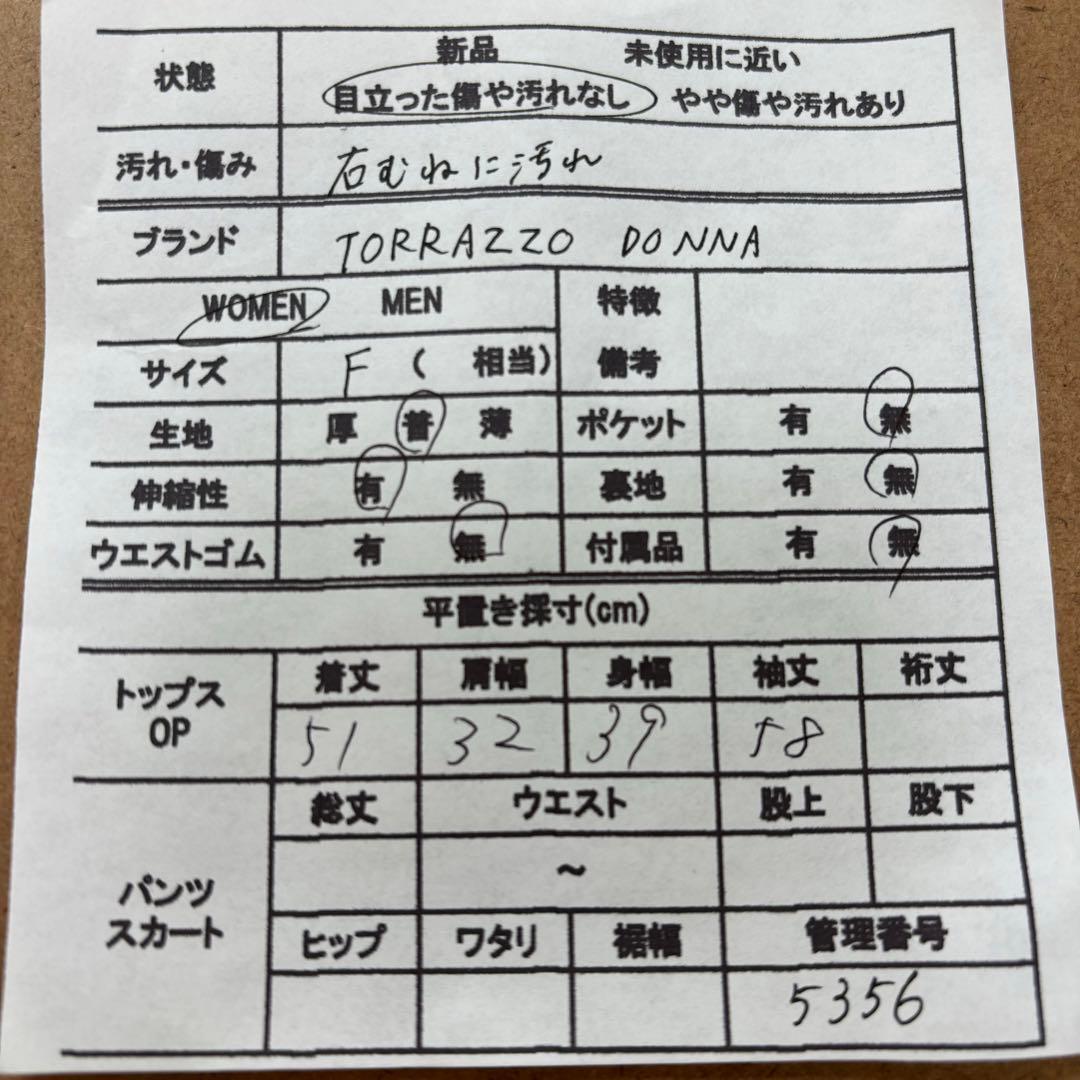 状態 新品 未使用に近い
目立った傷や汚れなし やや傷や汚れあり
汚れ・傷み 右むねに汚れ
ブランド TORRAZZO DONNA
WOMEN MEN 特徴
サイズ F ( 相当) 備考
生地 厚 普 薄 ポケット 有 無
伸縮性 有 無 裏地 有 無
ウエストゴム 有 無 付属品 有 無
平置き採寸(cm)
トップス 着丈 肩幅 身幅 袖丈 裄丈
OP 51 32 39 58
総丈 ウエスト 股上 股下
パンツ ~
スカート ヒップ ワタリ 裾幅 管理番号
5356